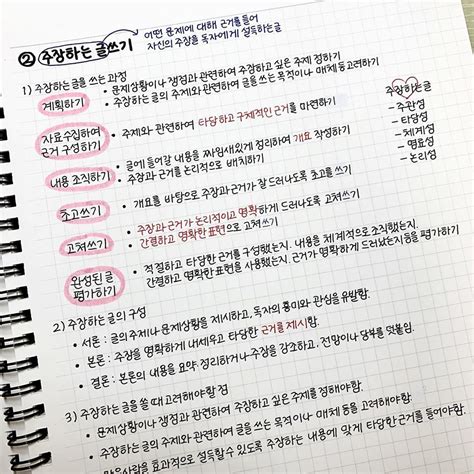 ② 주장하는 글쓰기
어떤 문제에 대해 근거를 들어
자신의 주장을 독자에게 설득하는글
1) 주장하는 글을 쓰는 과정
계획하기
• 문제상황이나 쟁점과 관련하여 주장하고 싶은 주제 정하기
• 주장하는 글의 주제와 관련하여 글을 쓰는 목적이나 매체 등고려하기
자료수집하여
근거 구성하기
• 주제와 관련하여 타당하고 구체적인 근거를 마련하기
내용 조직하기
• 글에 들어갈 내용을 짜임새있게 정리하여 개요 작성하기
• 주장과 근거를 논리적으로 배치하기
초고쓰기
• 개요를 바탕으로 주장과 근거가 잘 드러나도록 초고를 쓰기
고쳐쓰기
• 주장과 근거가 논리적이고 명확하게 드러나도록 고쳐쓰기
• 간결하고 명확한 표현으로 고쳐쓰기
완성된 글
평가하기
• 적절하고 타당한 근거를 구성했는지. 내용을 체계적으로 조직했는지.
간결하고 명확한 표현을 사용했는지. 근거가 명확하게 드러났는지등을 평가하기
주장하는글
- 주관성
- 타당성
- 체계성
- 명료성
- 논리성
2) 주장하는 글의 구성
• 서론 : 글의 주제나 문제상황을 제시하고, 독자의 흥미와 관심을 유발함.
• 본론 : 주장을 명확하게 내세우고 타당한 근거를 제시함.
• 결론 : 본론의 내용을 요약·정리하거나 주장을 강조하고, 전망이나 당부를 덧붙임.
3) 주장하는 글을 쓸 때 고려해야할 점
• 문제상황이나 쟁점과 관련하여 주장하고 싶은 주제를 정해야함.
• 주장하는 글의 주제와 관련하여 글을 쓰는 목적이나 매체 등을 고려해야함.
사람을 효과적으로 설득할수 있도록 주장하는 내용에 맞게 타당한 근거를 들어야함.